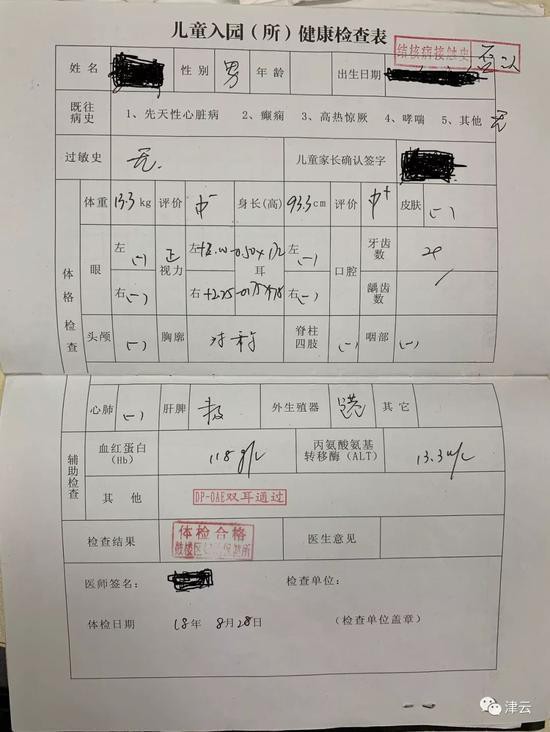 儿童入园（所）健康检查表
结核病接触史 否认
姓名 性别 男 年龄 出生日期
既往病史 1、先天性心脏病 2、癫痫 3、高热惊厥 4、哮喘 5、其他 无
过敏史 无. 儿童家长确认签字
体格检查
体重 13.3kg 评价 中- 身长(高) 93.3cm 评价 中+ 皮肤 (-)
眼 左(-) 正视力 左 耳 左(-) 口腔 牙齿数
右(-) 右+2.25 右(-) 龋齿数 /
头颅 (-) 胸廓 对称 脊柱四肢 (-) 咽部 (-)
心肺 (-) 肝脾 外生殖器 其它
辅助检查
血红蛋白(Hb) 118g/L 丙氨酸氨基转移酶(ALT) 13.3u/L
其他 DP-OAE双耳通过
检查结果 体检合格 医生意见
医师签名: 检查单位:
体检日期 18年 8月28日 (检查单位盖章)
津云